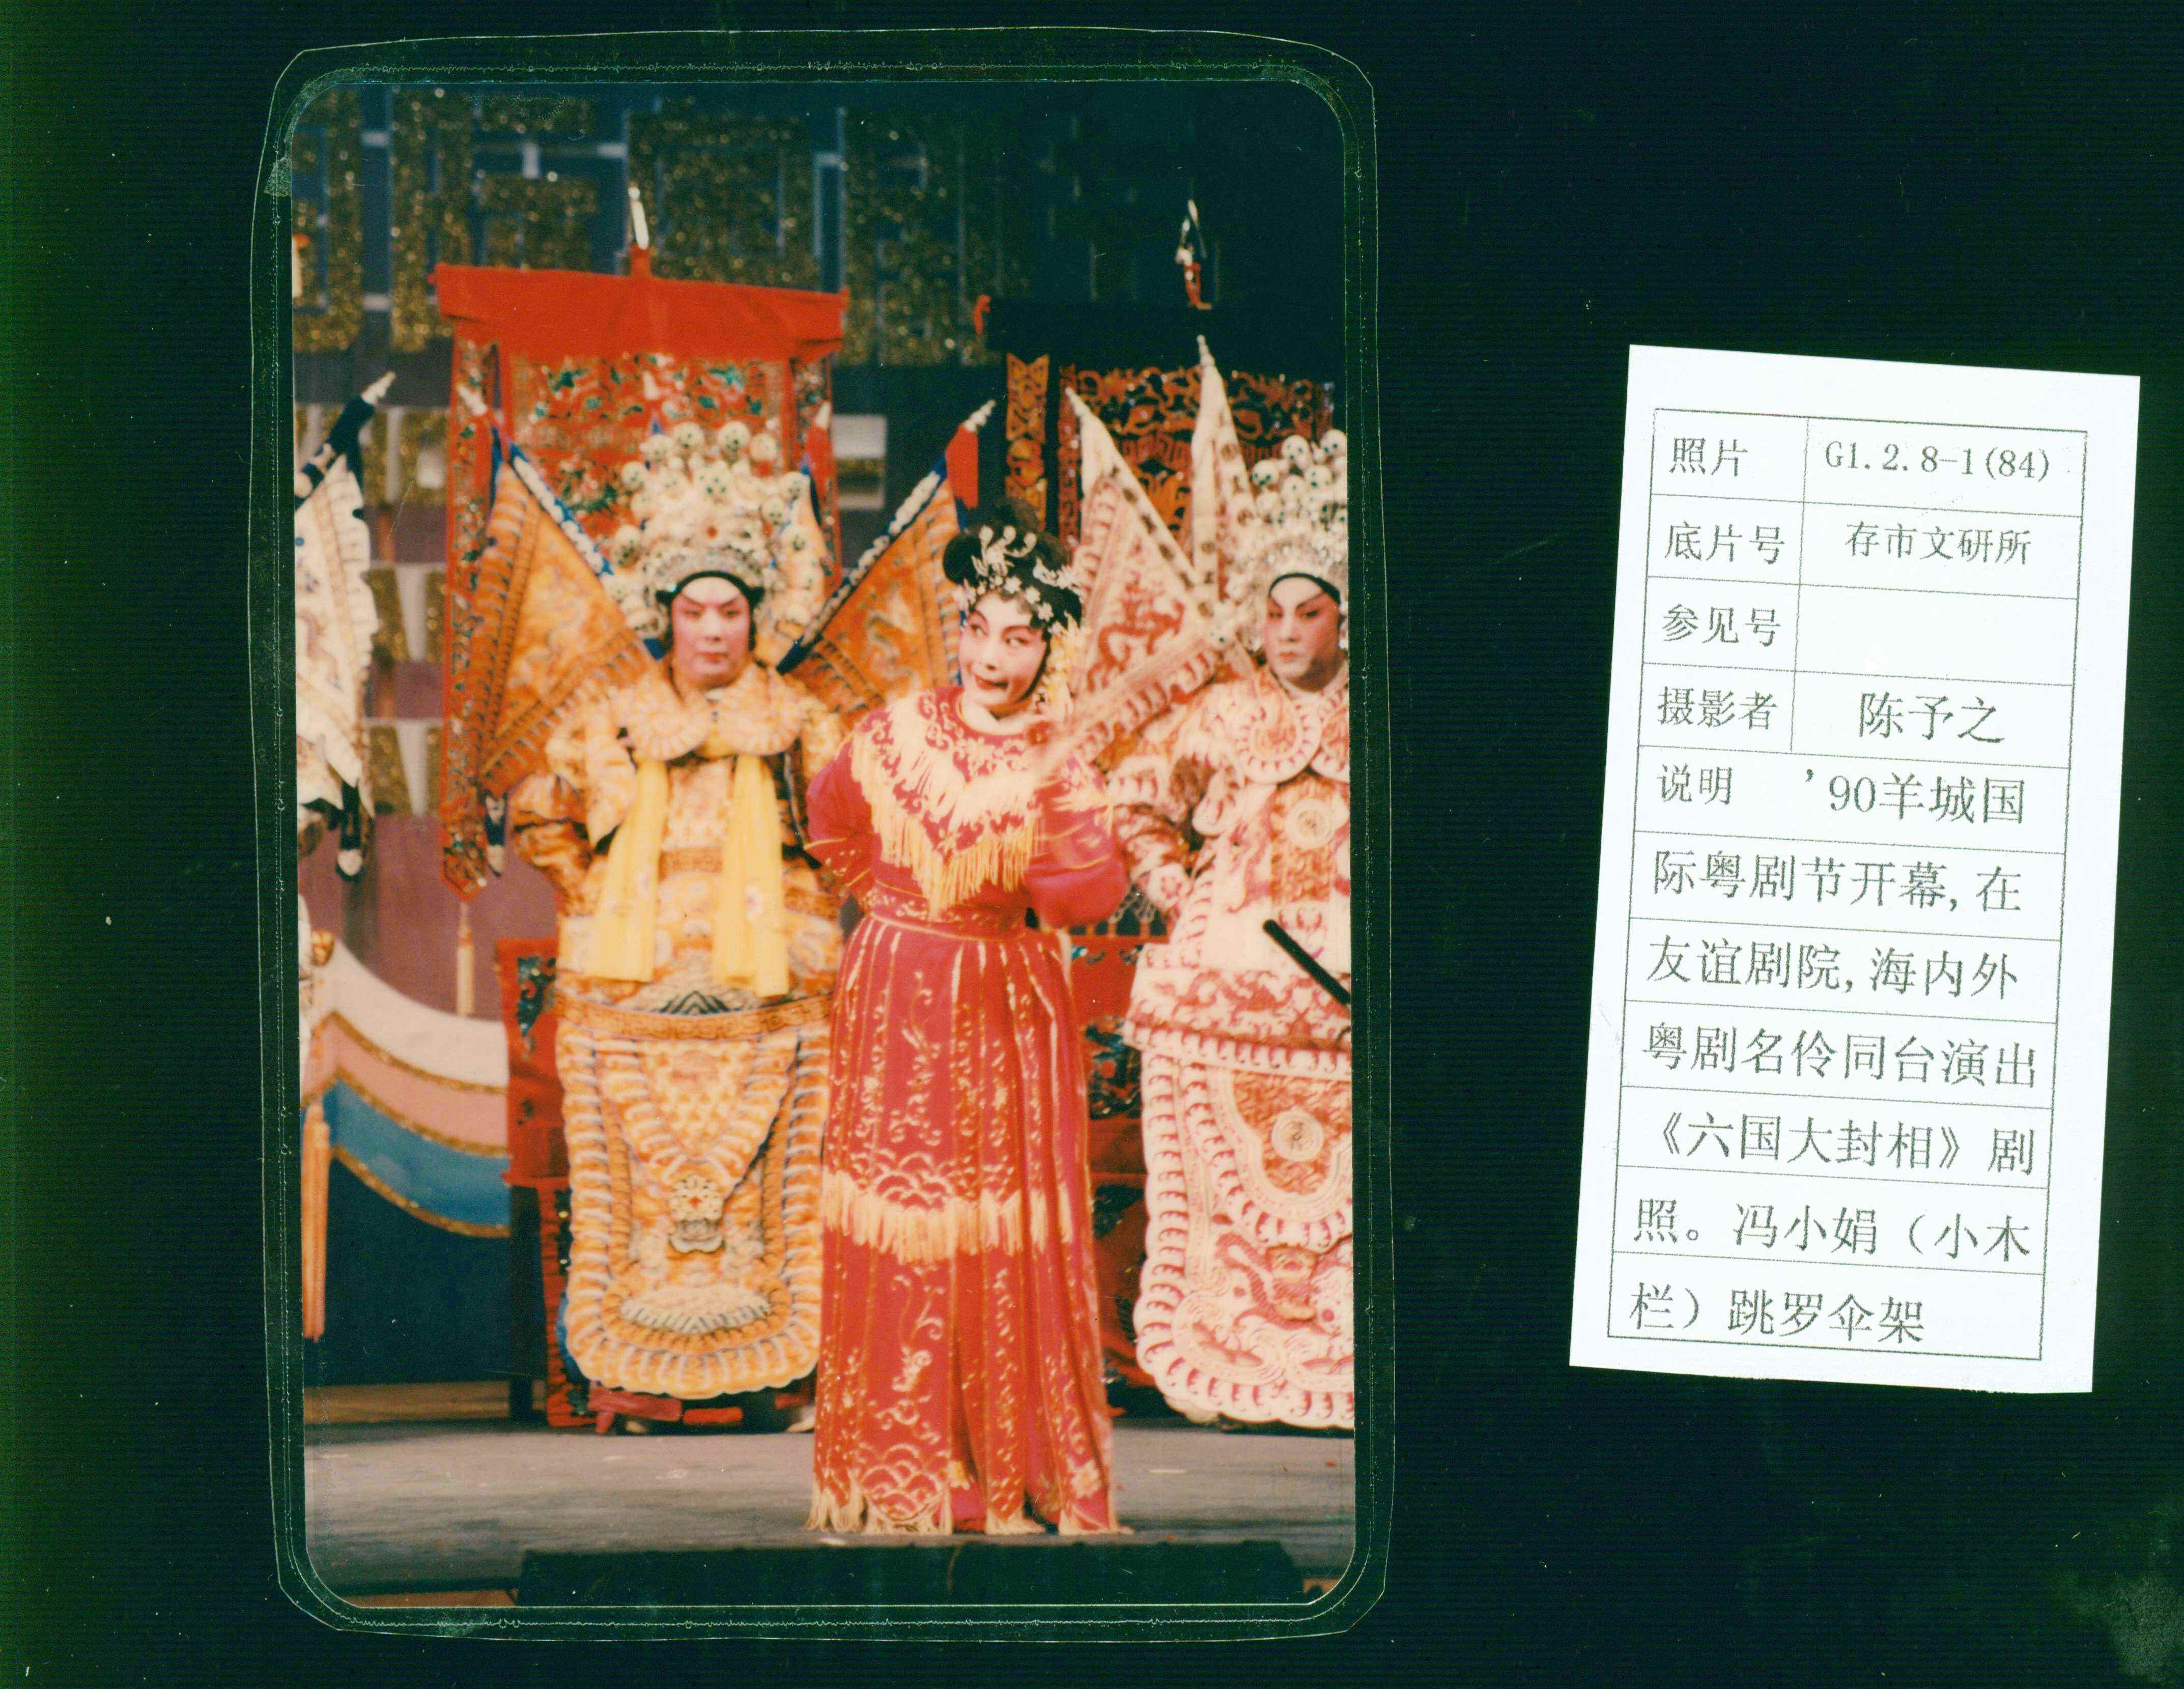 照片 G1.2.8-1(84)
底片号 存市文研所
参见号
摄影者 陈予之
说明 ’90羊城国
际粤剧节开幕,在
友谊剧院,海内外
粤剧名伶同台演出
《六国大封相》剧
照。冯小娟（小木
栏）跳罗伞架